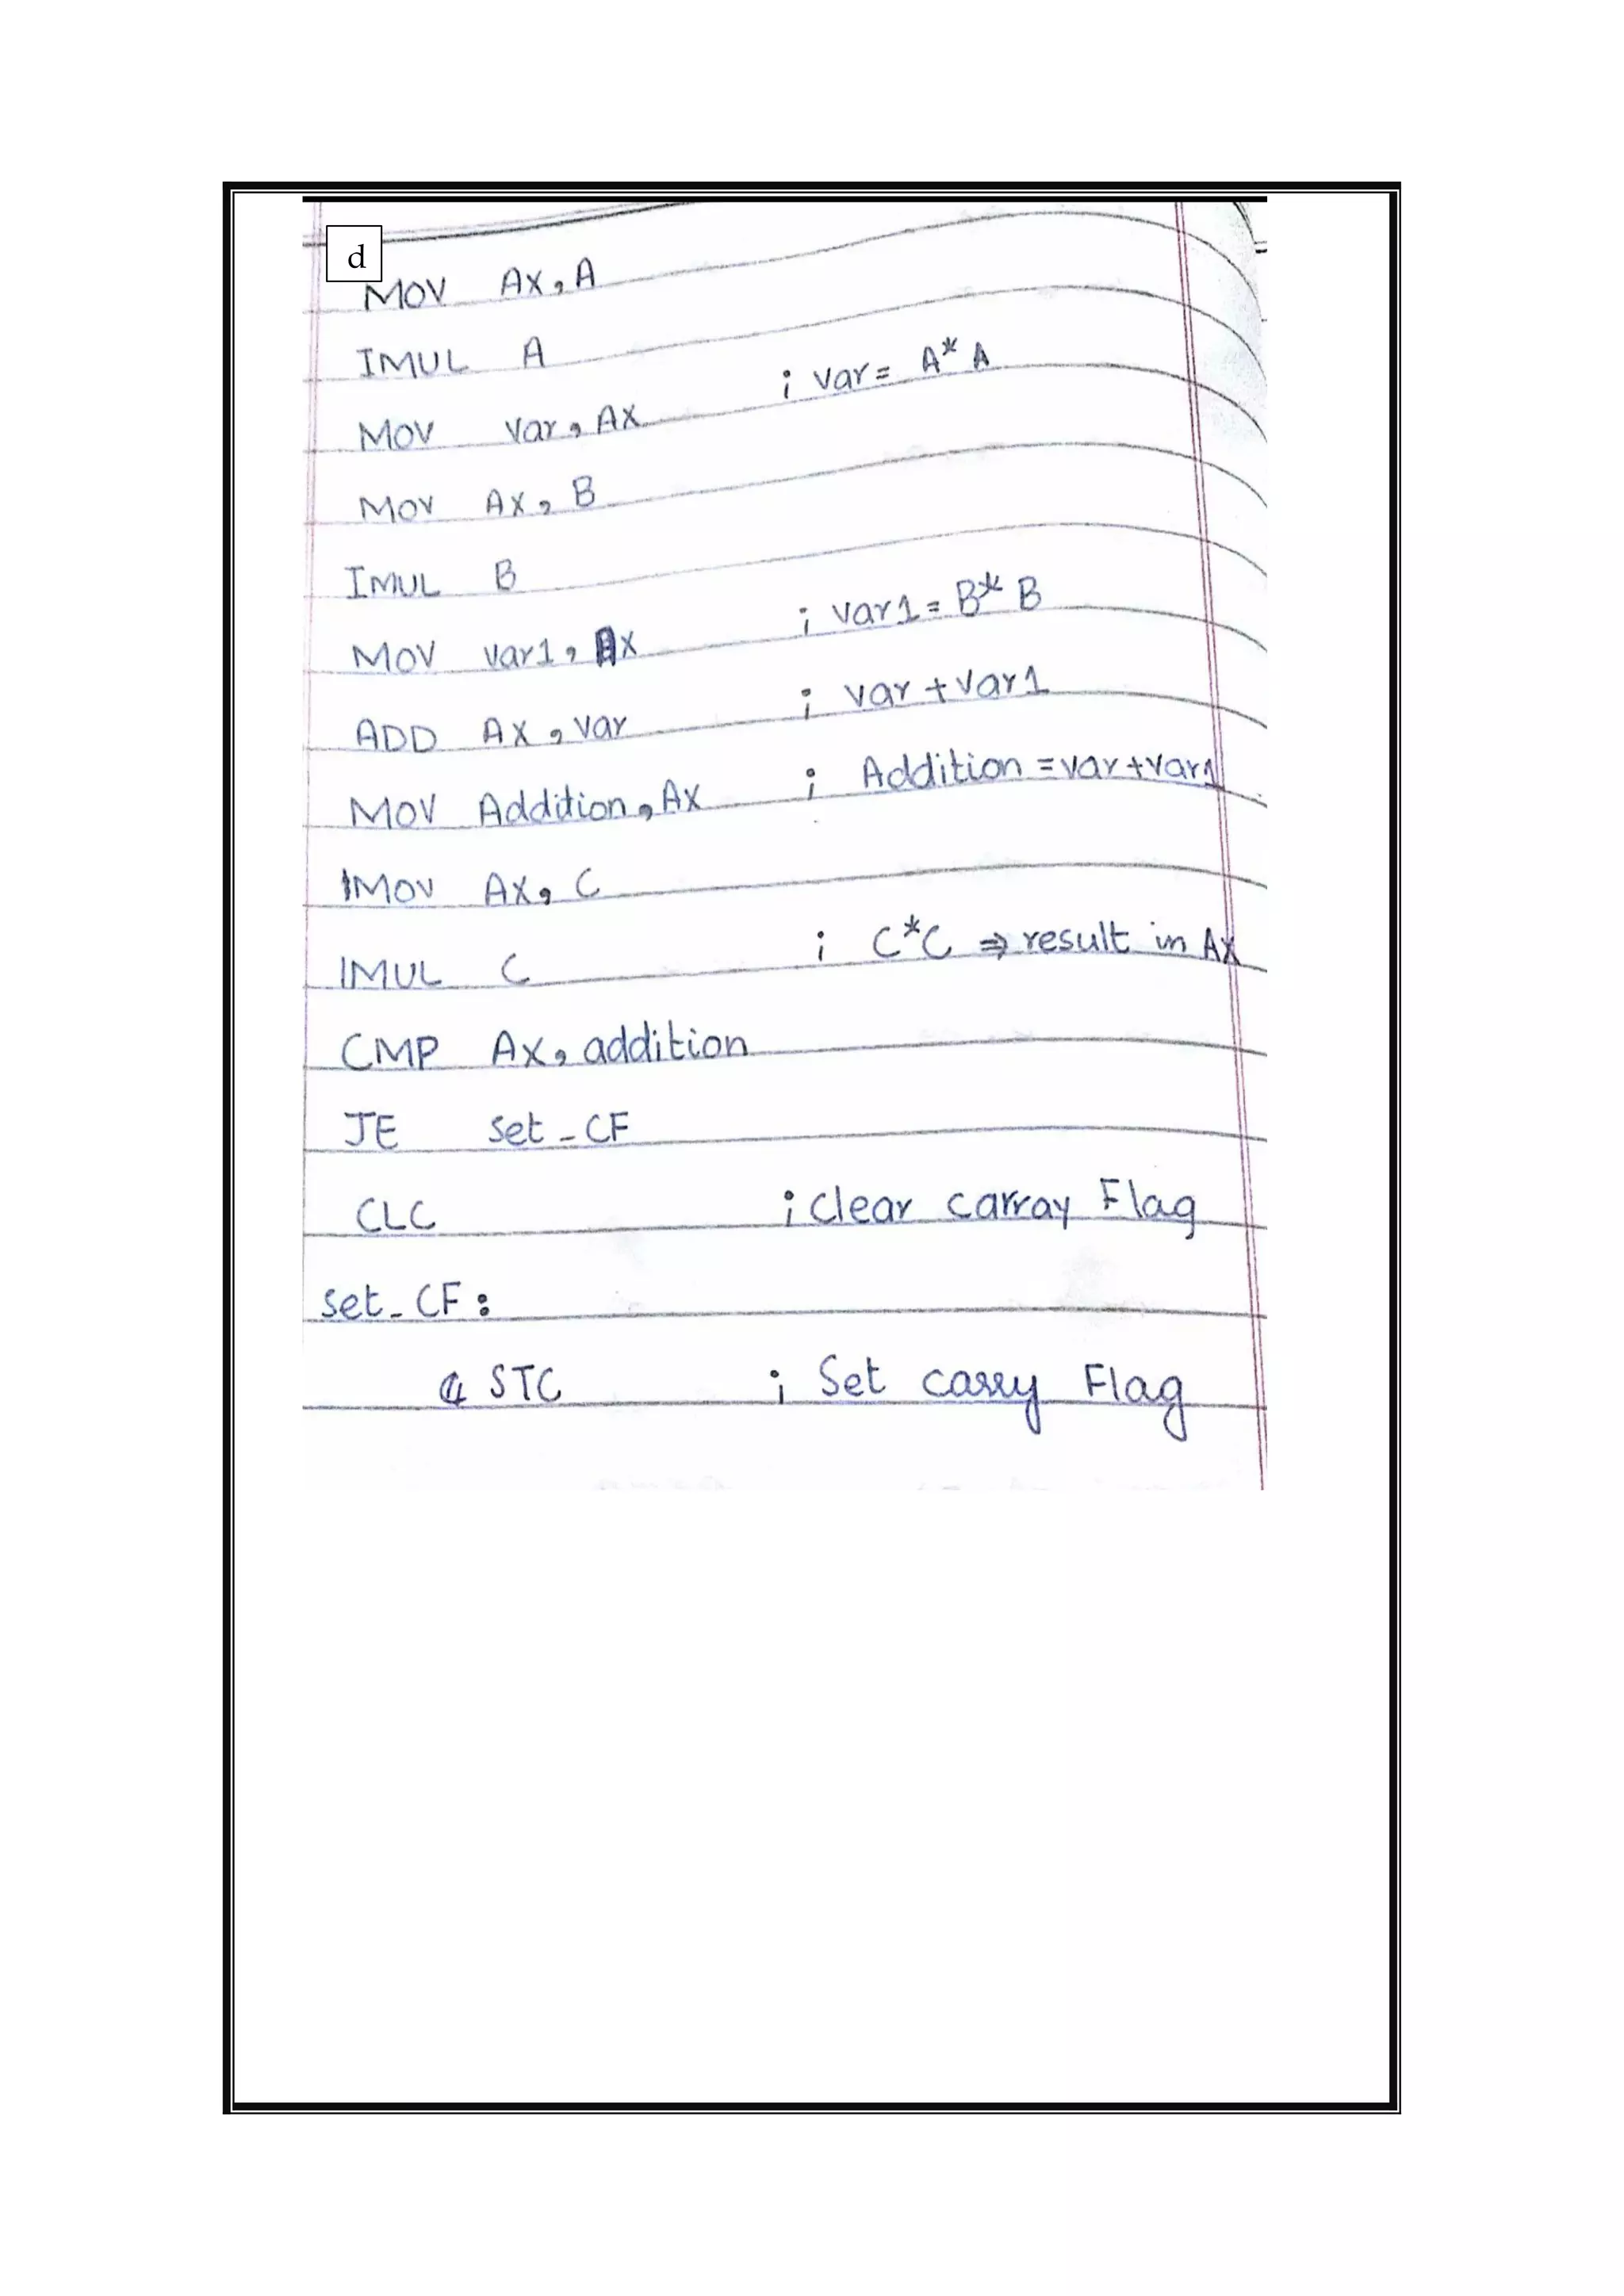 d
MOV AX, A
IMUL A
MOV var, AX ; var = A* A
MOV AX, B
IMUL B
MOV var1, AX ; var1 = B* B
ADD AX, var ; var + var1
MOV Addition, AX ; Addition = var + var1
MOV AX, C
IMUL C ; C*C ⇒ result in AX
CMP AX, addition
JE set_CF
CLC ; Clear carray Flag
set_CF:
STC ; Set carry Flag